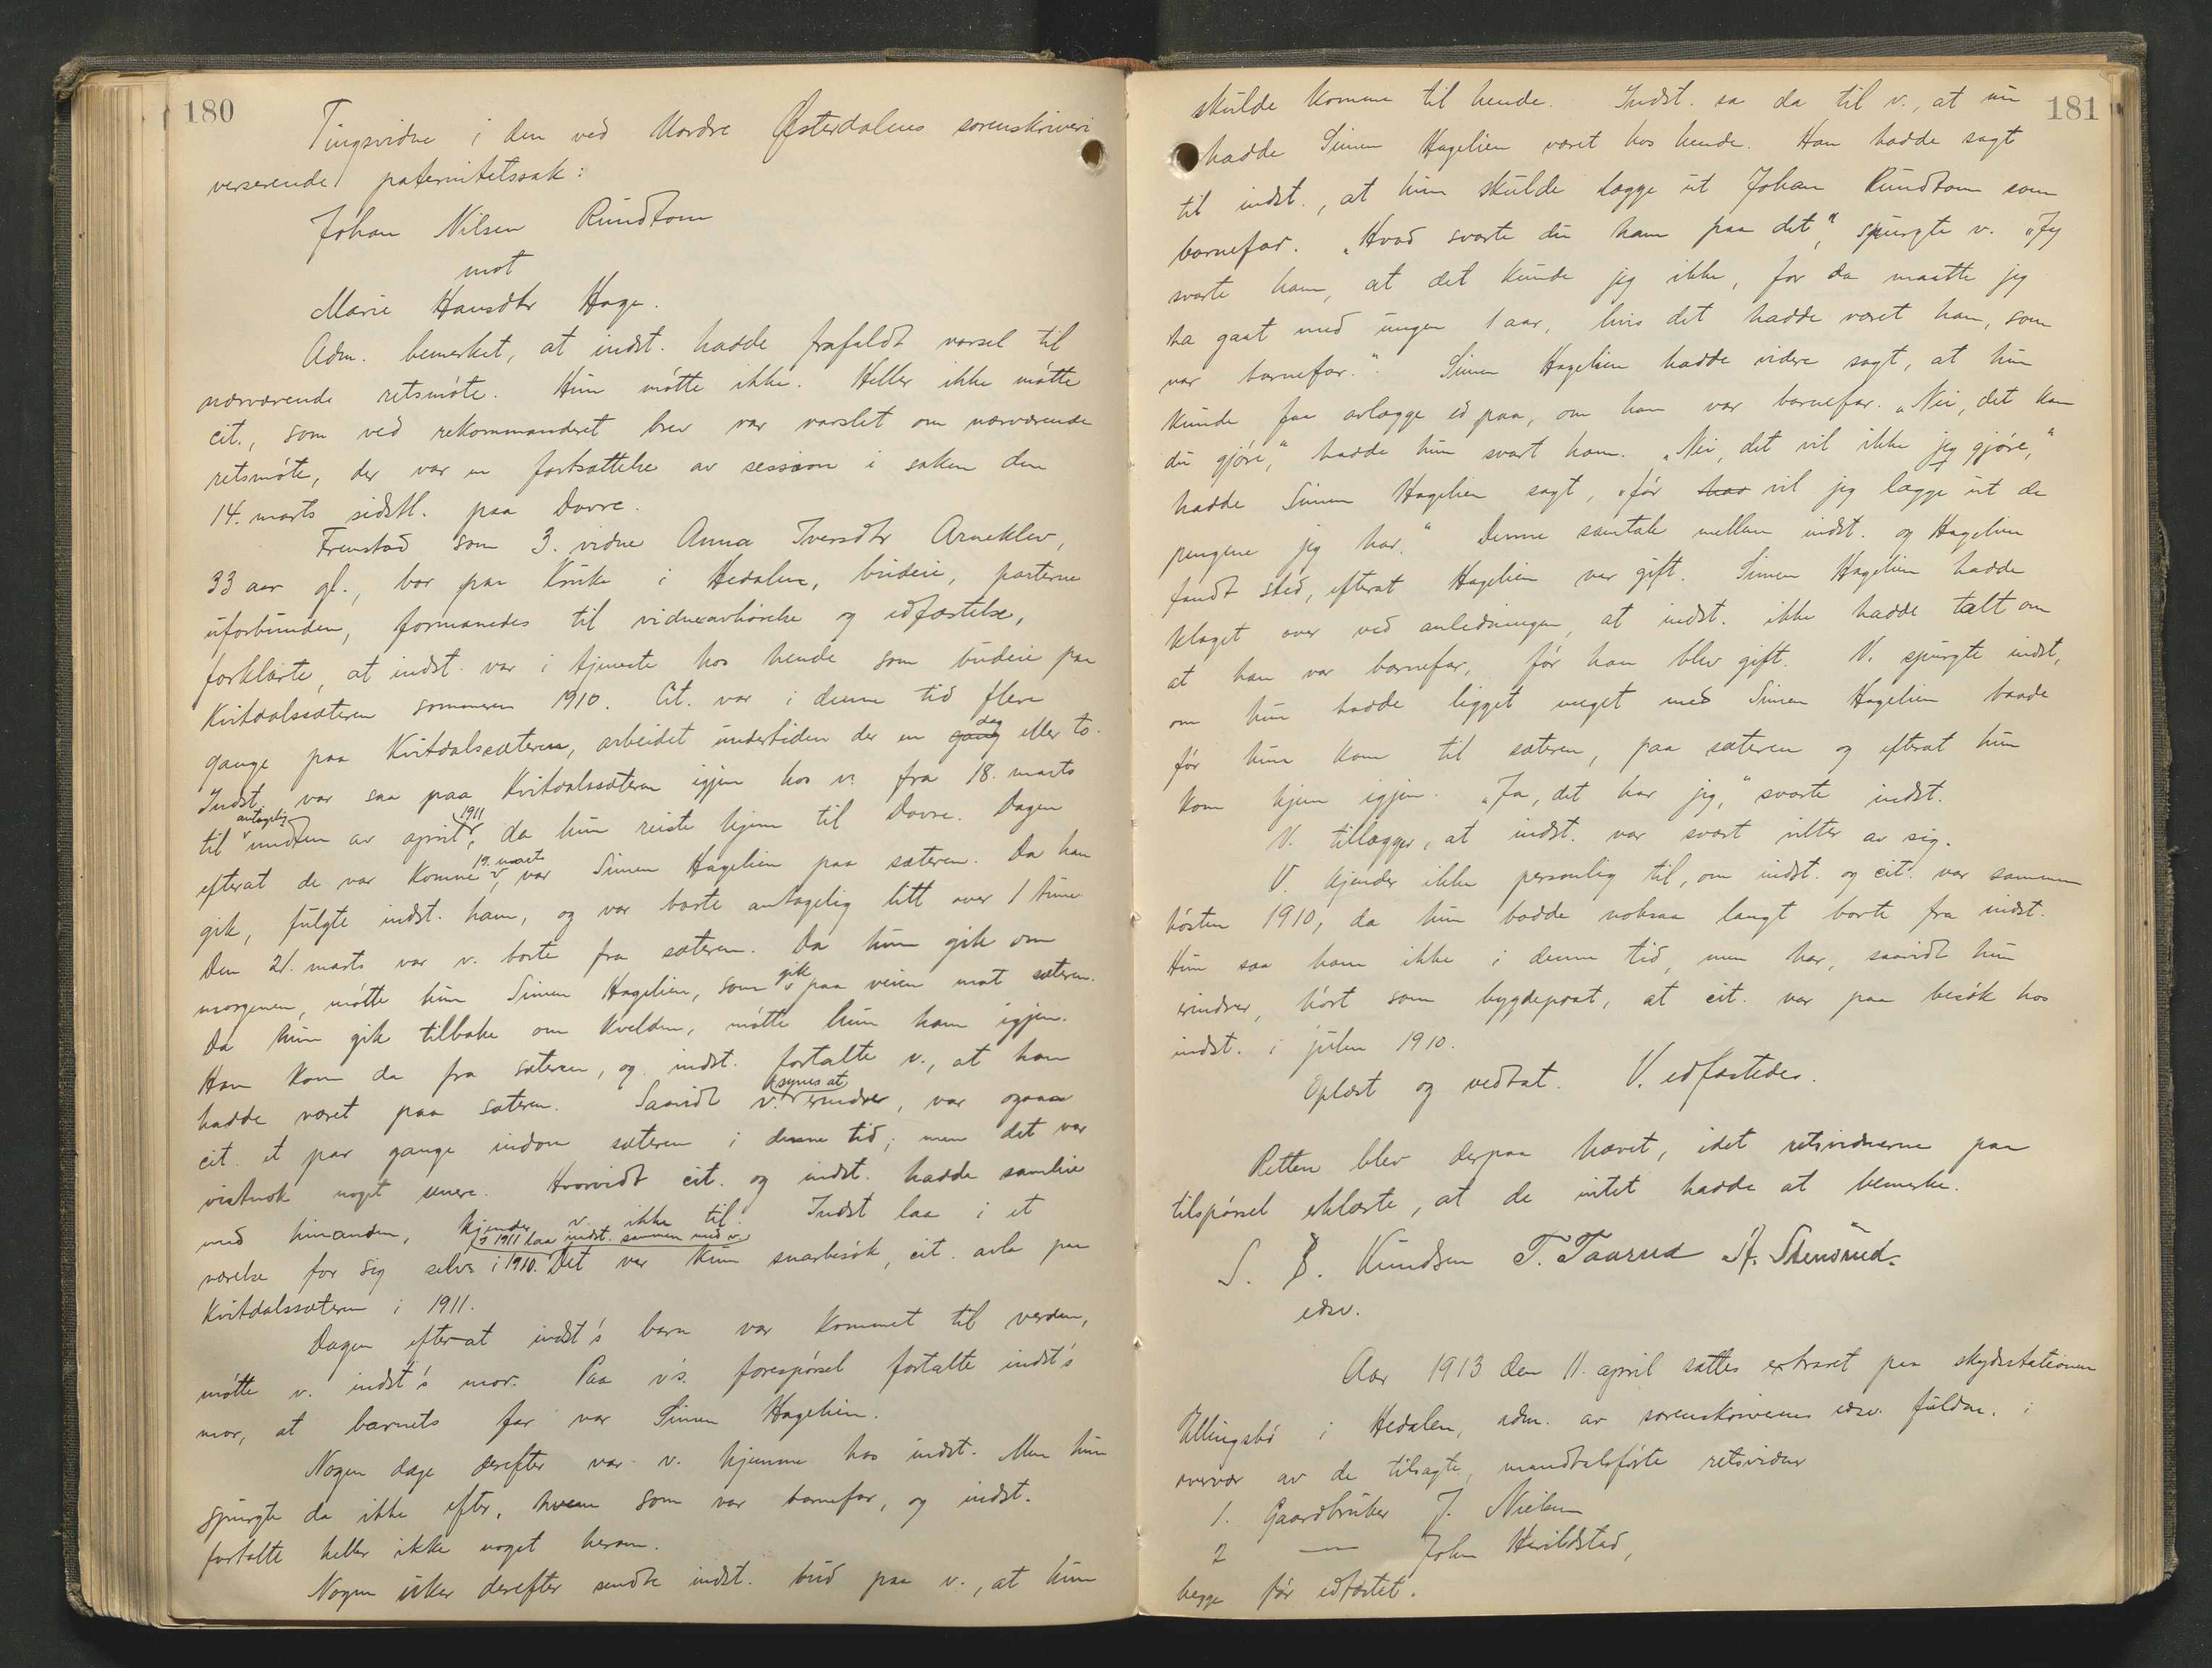 180
Tingsvidne i den ved Nordre Østerdalens sorenskriveri
verserende paternitetssak:
Johan Nilsen Rundtom
mot
Marie Hansdtr Hage.
Adm. bemerket, at indst. hadde frafaldt varsel til
nærværende retsmöte. Hun mötte ikke. Heller ikke mötte
cit., som ved rekommanderet brev var varslet om nærværende
retsmöte, der var en fortsættelse av session i saken den
14. marts sidstl. paa Dovre.
Fremstod som 3. vidne Anna Iversdtr Arneklev,
33 aar gl., bor paa Kruke i Hedalen, budeie, parterne
uforbunden, formanedes til vidneavhörelse og edfæstelse,
forklarte, at indst. var i tjeneste hos hende som budeie paa
Kvitdalssæteren sommeren 1910. Cit. var i denne tid flere
gange paa Kvitdalssæteren, arbeidet undertiden der en gang dag eller to.
Indst. var saa paa Kvitdalssæteren igjen hos v. fra 18. marts
til antagelig midten av april 1911, da hun reiste hjem til Dovre. Dagen
efterat de var komne 19. marts, var Simen Hagelien paa sæteren. Da han
gik, fulgte indst. ham, og var borte antagelig litt over 1 time.
Den 21. marts var v. borte fra sæteren. Da hun gik om
morgenen, mötte hun Simen Hagelien, som gik paa veien mot sæteren.
Da hun gik tilbake om kvelden, mötte hun ham igjen.
Han kom da fra sæteren, og indst. fortalte v., at han
hadde været paa sæteren. Saavidt v. synes at erindrer, var ogsaa
cit. et par gange indom sæteren i denne tid; men det var
vistnok noget senere. Hvorvidt cit. og indst. hadde samleie
med hinanden, kjender v. ikke til. Indst laa i et
værelse for sig selv i 1910. I 1911 laa indst. sammen med v. Det var kun snarbesök, cit. avla paa
Kvitdalssæteren i 1911.
Dagen efterat indst's barn var kommet til verden,
mötte v. indst's mor. Paa v's. forespörsel fortalte indst's
mor, at barnets far var Simen Hagelien.
Nogen dage derefter var v. hjemme hos indst. Men hun
spurgte da ikke efter, hvem som var barnefar, og indst.
fortalte heller ikke noget herom.
Nogen uker derefter sendte indst. bud paa v., at hun
181
skulde komme til hende. Indst. sa da til v., at nu
hadde Simen Hagelien været hos hende. Han hadde sagt
til indst., at hun skulde lægge ut Johan Rundtom som
barnefar. „Hvad svarte du ham paa det", spurgte v. „Jeg
svarte ham, at det kunde jeg ikke, for da maatte jeg
ha gaat med ungen 1 aar, hvis det hadde været han, som
var barnefar." Simen Hagelien hadde videre sagt, at hun
kunde faa avlægge ed paa, om han var barnefar. „Nei, det kan
du gjöre," hadde hun svart ham. „Nei, det vil ikke jeg gjöre,"
hadde Simen Hagelien sagt, „för har vil jeg lægge ut de
pengene jeg har." Denne samtale mellem indst. og Hagelien
fandt sted, efterat Hagelien var gift. Simen Hagelien hadde
klaget over ved anledningen, at indst. ikke hadde talt om
at han var barnefar, för han blev gift. V. spurgte indst,
om hun hadde ligget meget med Simen Hagelien baade
för hun kom til sæteren, paa sæteren og efterat hun
kom hjem igjen. „Ja, det har jeg," svarte indst.
V. tillægger, at indst. var svært vilter av sig.
V. kjender ikke personlig til, om indst. og cit. var sammen
hösten 1910, da hun bodde noksaa langt borte fra indst.
Hun saa ham ikke i denne tid, men har, saavidt hun
erindrer, hört som bygdeprat, at cit. var paa besök hos
indst. i julen 1910.
Oplæst og vedtat. V. edfæstedes.
Retten blev derpaa hævet, idet retsvidnerne paa
tilspörsel erklærte, at de intet hadde at bemerke.
S. B. Knudsen T. Taarud A. Stensrud.
edsv.
Aar 1913 den 11. april sattes extraret paa skydsstationen
Ullingsbö i Hedalen, adm. av sorenskriverens edsv. fuldm. i
overvær av de tilsagte, mandtalsförte retsvidner
1. Gaardbruker J. Nielsen
2 — John Heirildstad,
begge för edfæstet.